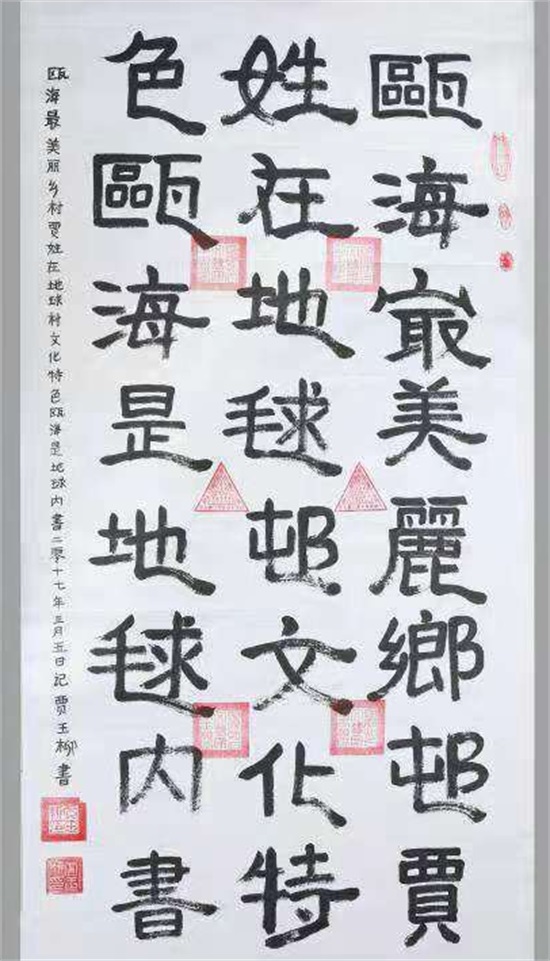 甌海最美麗鄉邨賈
姓在地毬邨文化特
色甌海是地毬内書
瓯海最美丽乡村贾姓在地球村文化特色瓯海是地球内書二零十七年三月五日记贾王柳書